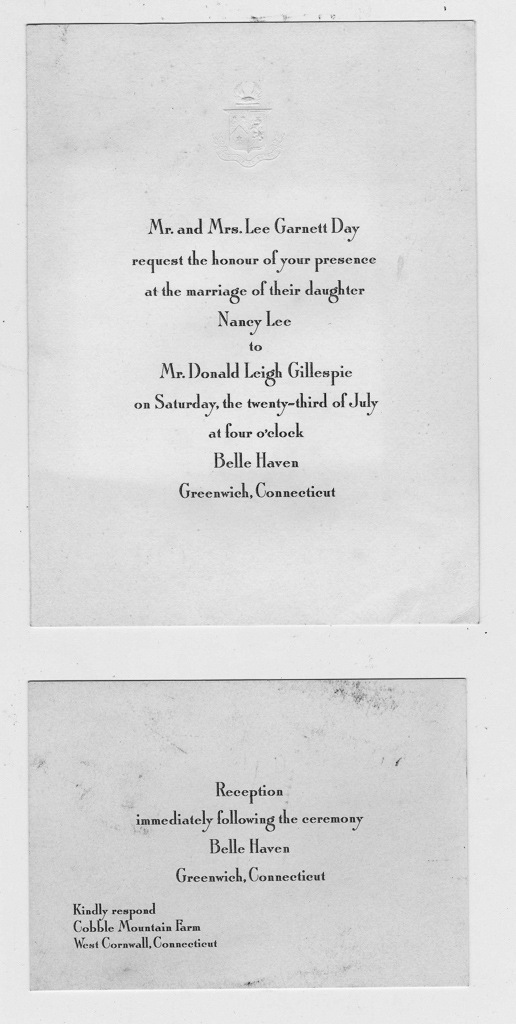 Mr. and Mrs. Lee Garnett Day
request the honour of your presence
at the marriage of their daughter
Nancy Lee
to
Mr. Donald Leigh Gillespie
on Saturday, the twenty-third of July
at four o'clock
Belle Haven
Greenwich, Connecticut
Reception
immediately following the ceremony
Belle Haven
Greenwich, Connecticut
Kindly respond
Cobble Mountain Farm
West Cornwall, Connecticut